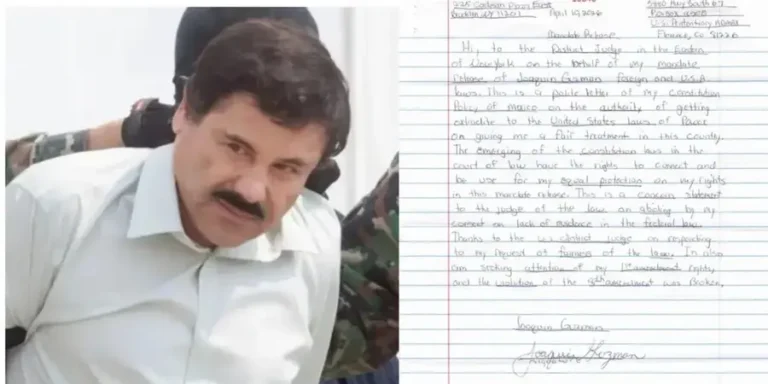 April 10, 2026
Florence, CO 81226
Mandate Release
Hi, to the District Judge in the Eastern
of New York on the behalf of my mandate
release of Joaquin Guzman foreign and U.S.A
laws. This is a polite letter of my constitution
Policy of mexico on the authority of getting
to the United States laws of
on giving me a fair treatment in this county.
The emerging of the constitution laws in the
court of law have the rights to correct and
be use for my equal protection on my rights
in this mandate release. This is a concern statement
to the judge of the law. an by my
comment on lack of evidence in the federal law.
Thanks to the U.S. district Judge on responding
to my request of fairness of the laws. In also
am seeking attention of my 1st amendment rights,
and the violation of the 8th amendment was Broken.
Joaquin Guzman
Joaquin Guzman